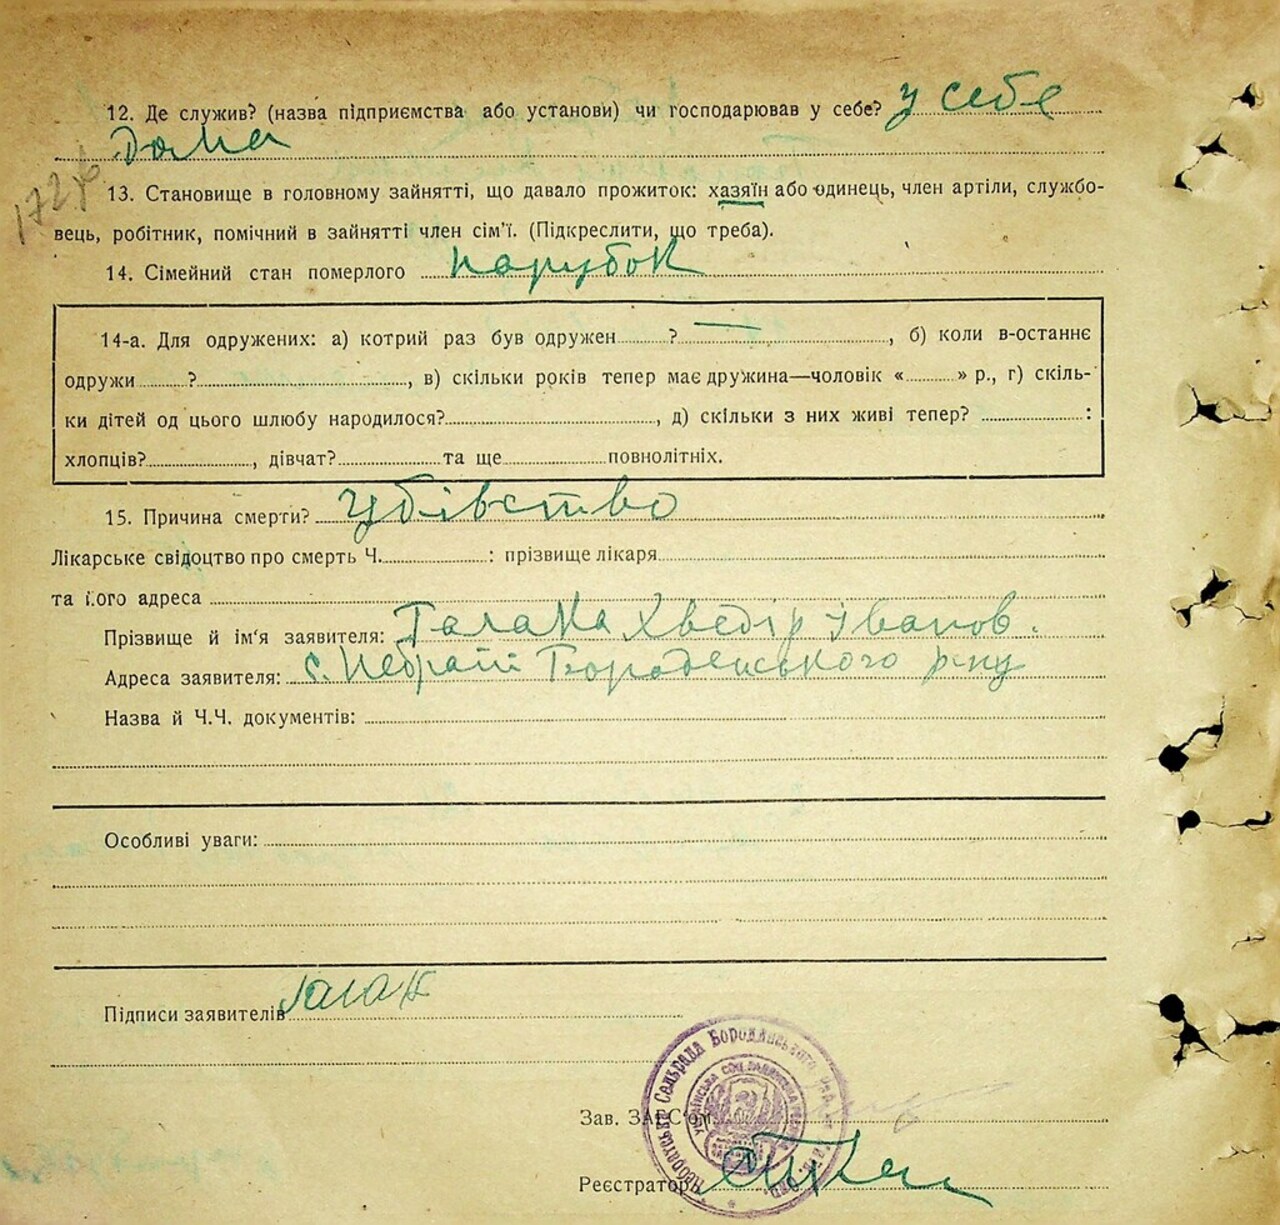 12. Де служив? (назва підприємства або установи) чи господарював у себе? у себе
дома
172
13. Становище в головному зайнятті, що давало прожиток: хазяїн або одинець, член артіли, службо-
вець, робітник, помічний в зайнятті член сім’ї. (Підкреслити, що треба).
14. Сімейний стан померлого парубок
14-а. Для одружених: а) котрий раз був одружен ? — , б) коли в-останнє
одружи ? , в) скільки років тепер має дружина—чоловік « » р., г) скіль-
ки дітей од цього шлюбу народилося? , д) скільки з них живі тепер? :
хлопців? , дівчат? та ще повнолітніх.
15. Причина смерти? убівство
Лікарське свідоцтво про смерть Ч. : прізвище лікаря
та його адреса
Прізвище й ім'я заявителя: Галака Хведір Іванов.
Адреса заявителя: с. Небрат Бородянського р-ну
Назва й Ч.Ч. документів:
Особливі уваги:
Підписи заявителів Галак
Небратська Сельрада Бородянського
Зав. ЗАГС'ом
Реєстратор